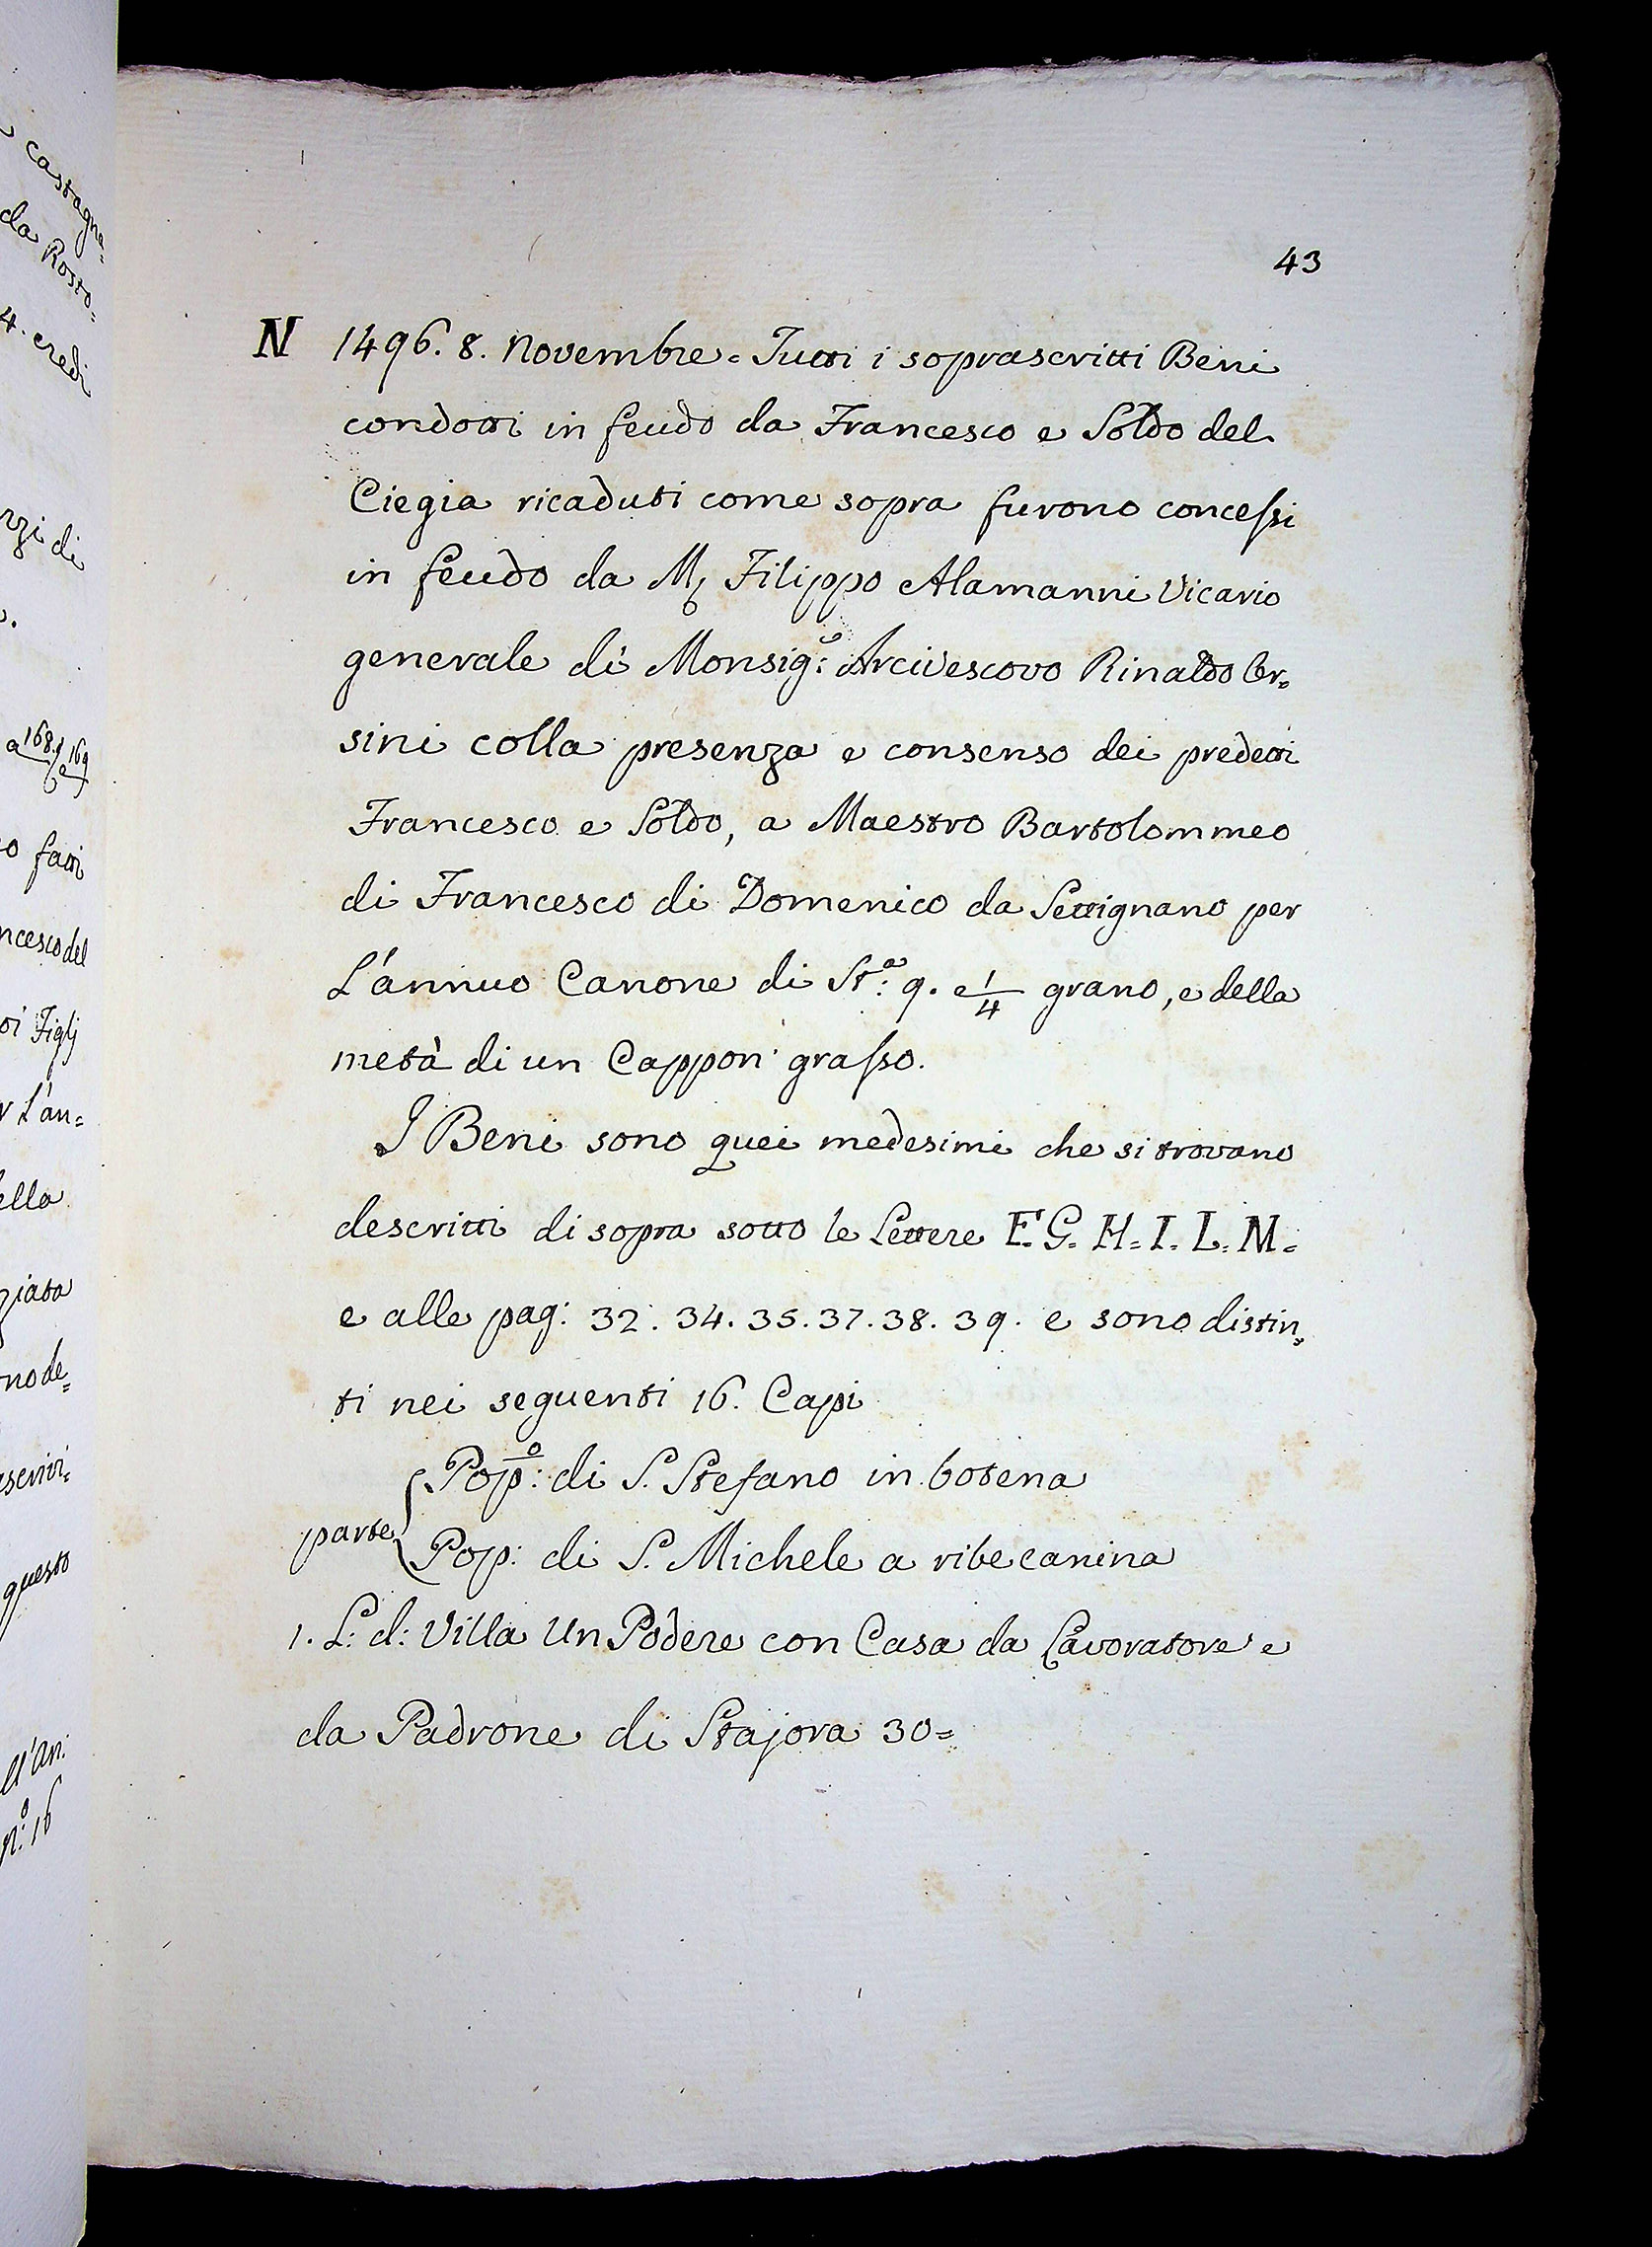 43
N 1496. 8. Novembre = Tutti i soprascritti Beni
condotti in feudo da Francesco e Soldo del
Ciegia ricaduti come sopra furono concessi
in feudo da M. Filippo Alamanni Vicario
generale di Monsig:e Arcivescovo Rinaldo Or=
sini colla presenza e consenso dei predetti
Francesco e Soldo, a Maestro Bartolommeo
di Francesco di Domenico da Settignano per
L'annuo Canone di St:a 9. e 1/4 grano, e della
metà di un Cappon' grasso.
I Beni sono quei medesimi che si trovano
descritti di sopra sotto le Lettere E. G. H. I. L. M.
e alle pag: 32. 34. 35. 37. 38. 39. e sono distin=
ti nei seguenti 16. Capi
Pop:o di S. Stefano in botena
parte
Pop: di S. Michele a ribecanina
1. L: d: Villa Un Podere con Casa da Lavoratore e
da Padrone di Stajora 30=
castagne=
da Rosto=
4. credi
nzi di
a 168. e 169
o fatti
ncesco del
oi Figlj
r L'an=
ella
ziata
no de=
questo
ll'An:
n:o 16